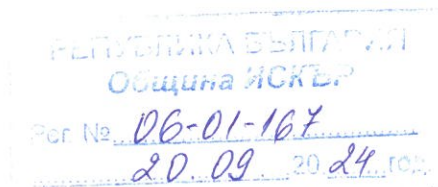 РЕПУБЛИКА БЪЛГАРИЯ
Община ИСКЪР
Рег. № 06-01-167
20.09 2024 год.